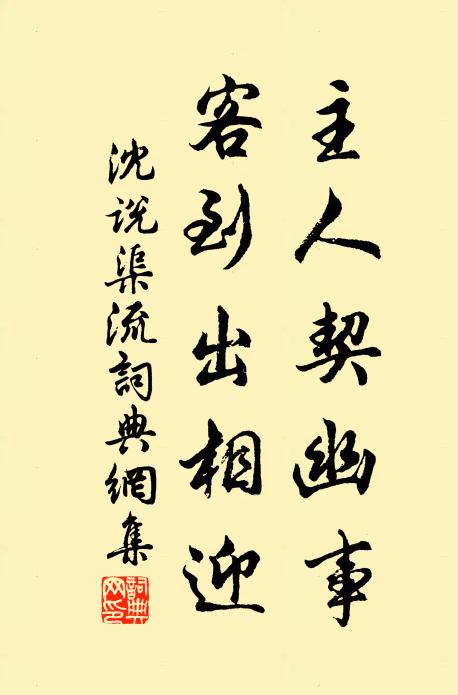 主人契幽事
客到出相迎
沈说渠流詞典網集
詞典
网印